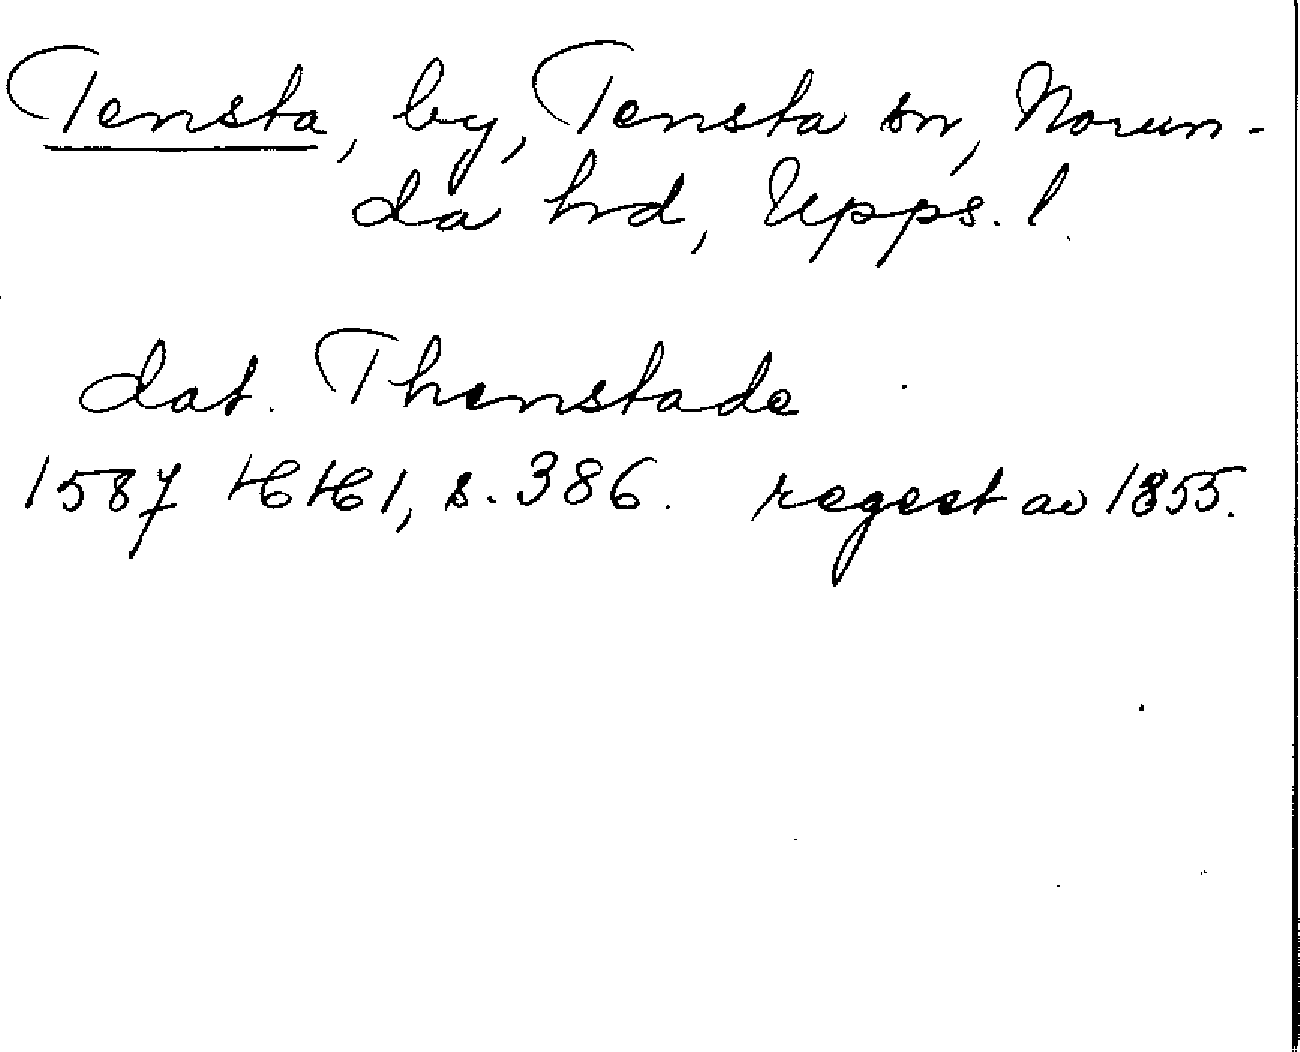 Tensta, by, Tensta sn, Norun-
da hd, Upps. l.
dat. Thenstade
1587 HH 1, s. 386. regest av 1855.